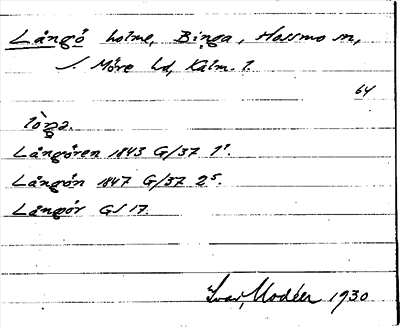 Långö holme, Binga, Hossmo sn,
S. Möre hd, Kalm. l.
64
lòŋə.
Långören 1843 G/37 1¹.
Långön 1847 G/37 2⁵.
Långör GS 17.
Ivar Modéer 1930